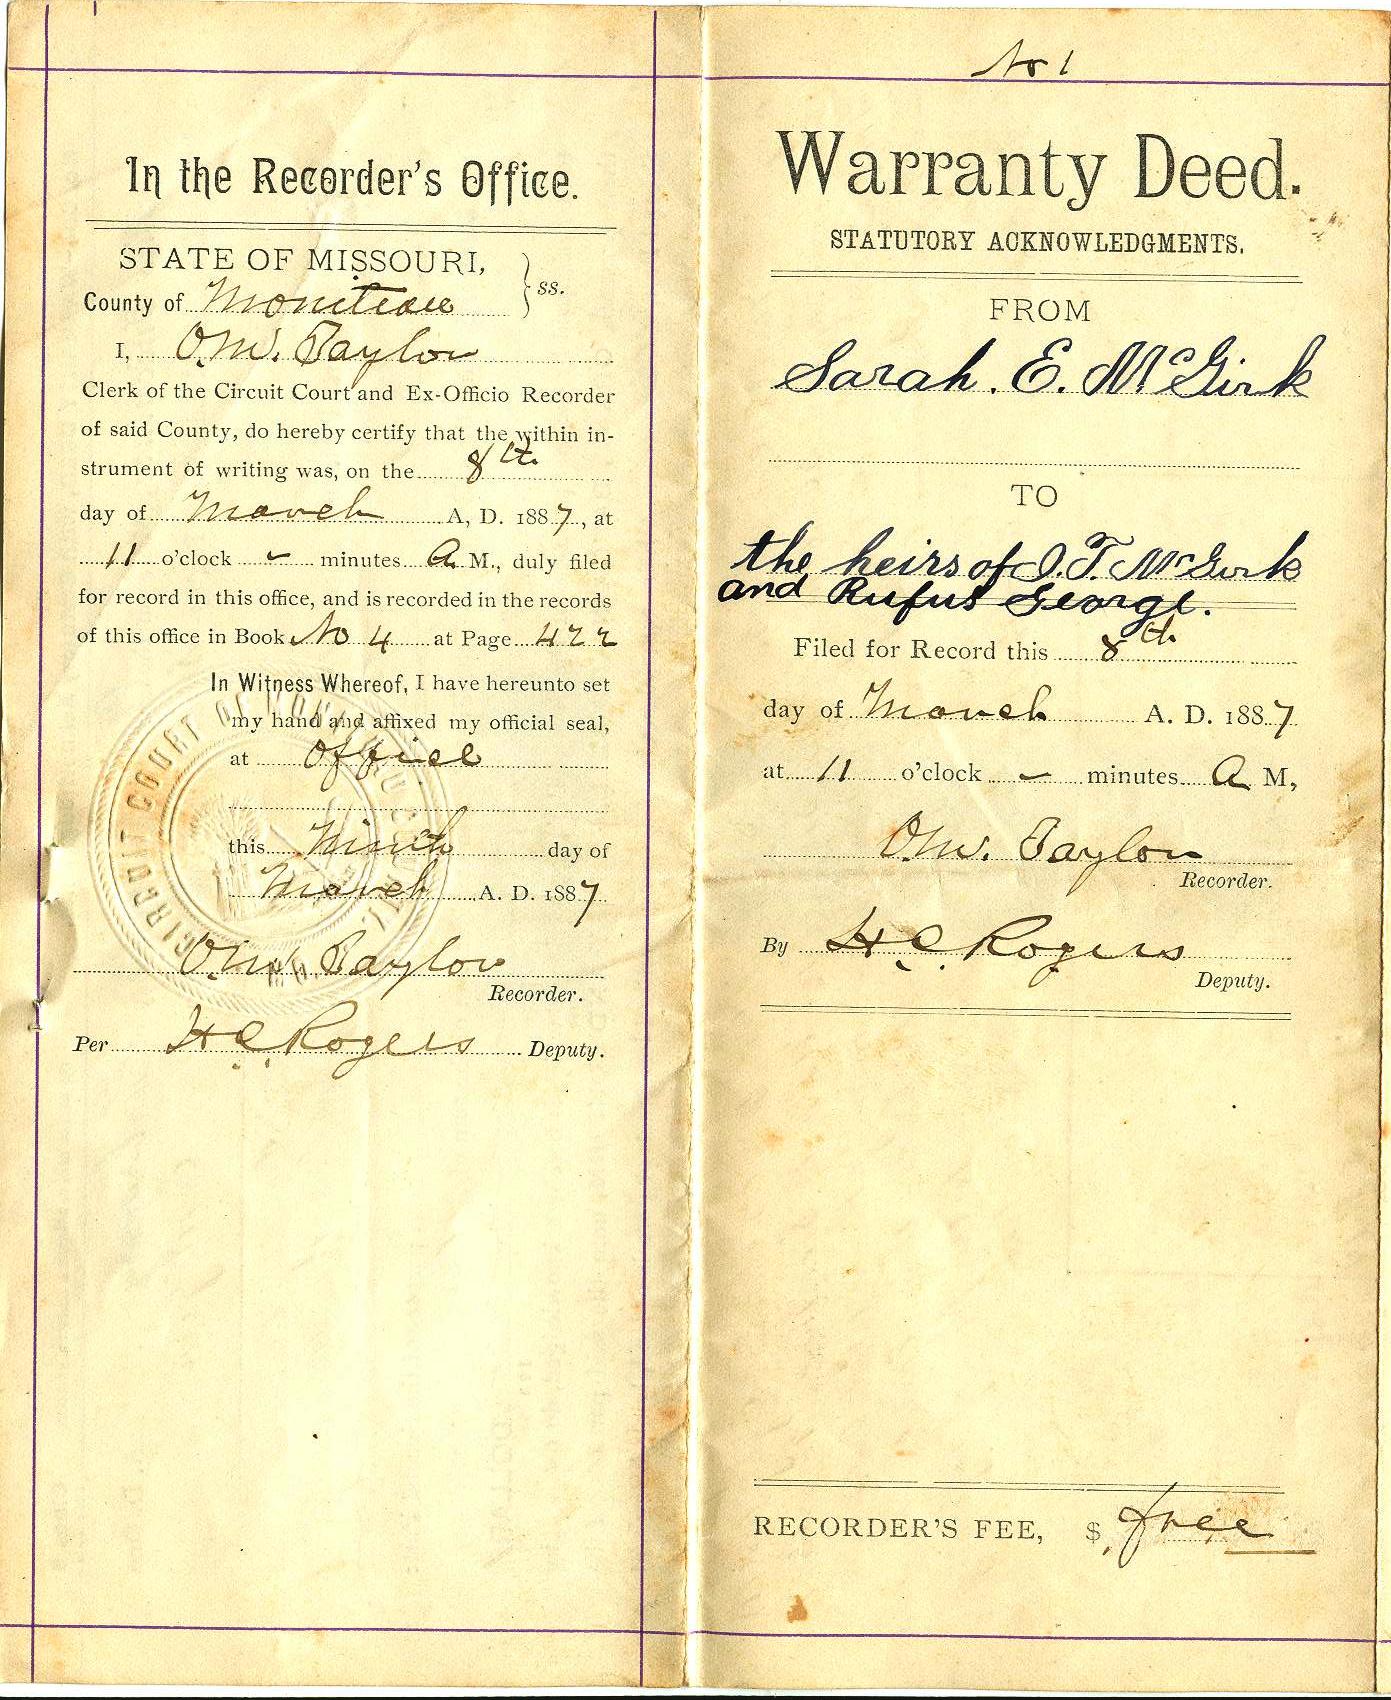 In the Recorder's Office.
STATE OF MISSOURI,
County of Moniteau } ss.
I, O.W. Taylor
Clerk of the Circuit Court and Ex-Officio Recorder
of said County, do hereby certify that the within in-
strument of writing was, on the 8th
day of March A, D. 1887, at
11 o'clock - minutes A M., duly filed
for record in this office, and is recorded in the records
of this office in Book No 4 at Page 422
In Witness Whereof, I have hereunto set
my hand and affixed my official seal,
at office
this Ninth day of
March A. D. 1887
O.W. Taylor
Recorder.
Per H.C. Rogers Deputy.
CIRCUIT COURT OF MONITEAU COUNTY MO.
No 1
Warranty Deed.
STATUTORY ACKNOWLEDGMENTS.
FROM
Sarah. E. McGirk
TO
the heirs of J. T. McGirk
and Rufus George.
Filed for Record this 8th
day of March A. D. 1887
at 11 o'clock - minutes A M,
O.W. Taylor
Recorder.
By H.C. Rogers
Deputy.
RECORDER'S FEE, $ free